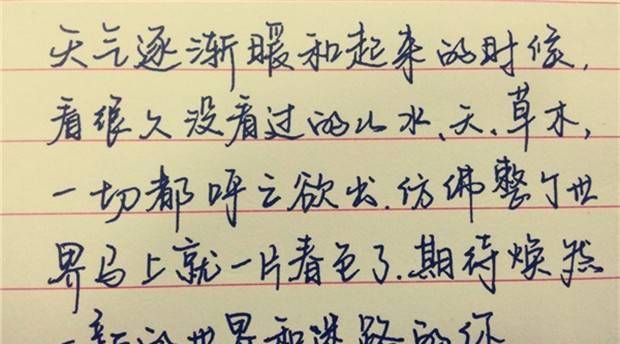 天气逐渐暖和起来的时候,
看很久没看过的山水、天、草木,
一切都呼之欲出.仿佛整个世
界马上就一片春色了.期待焕然
一新的世界和迷路的你